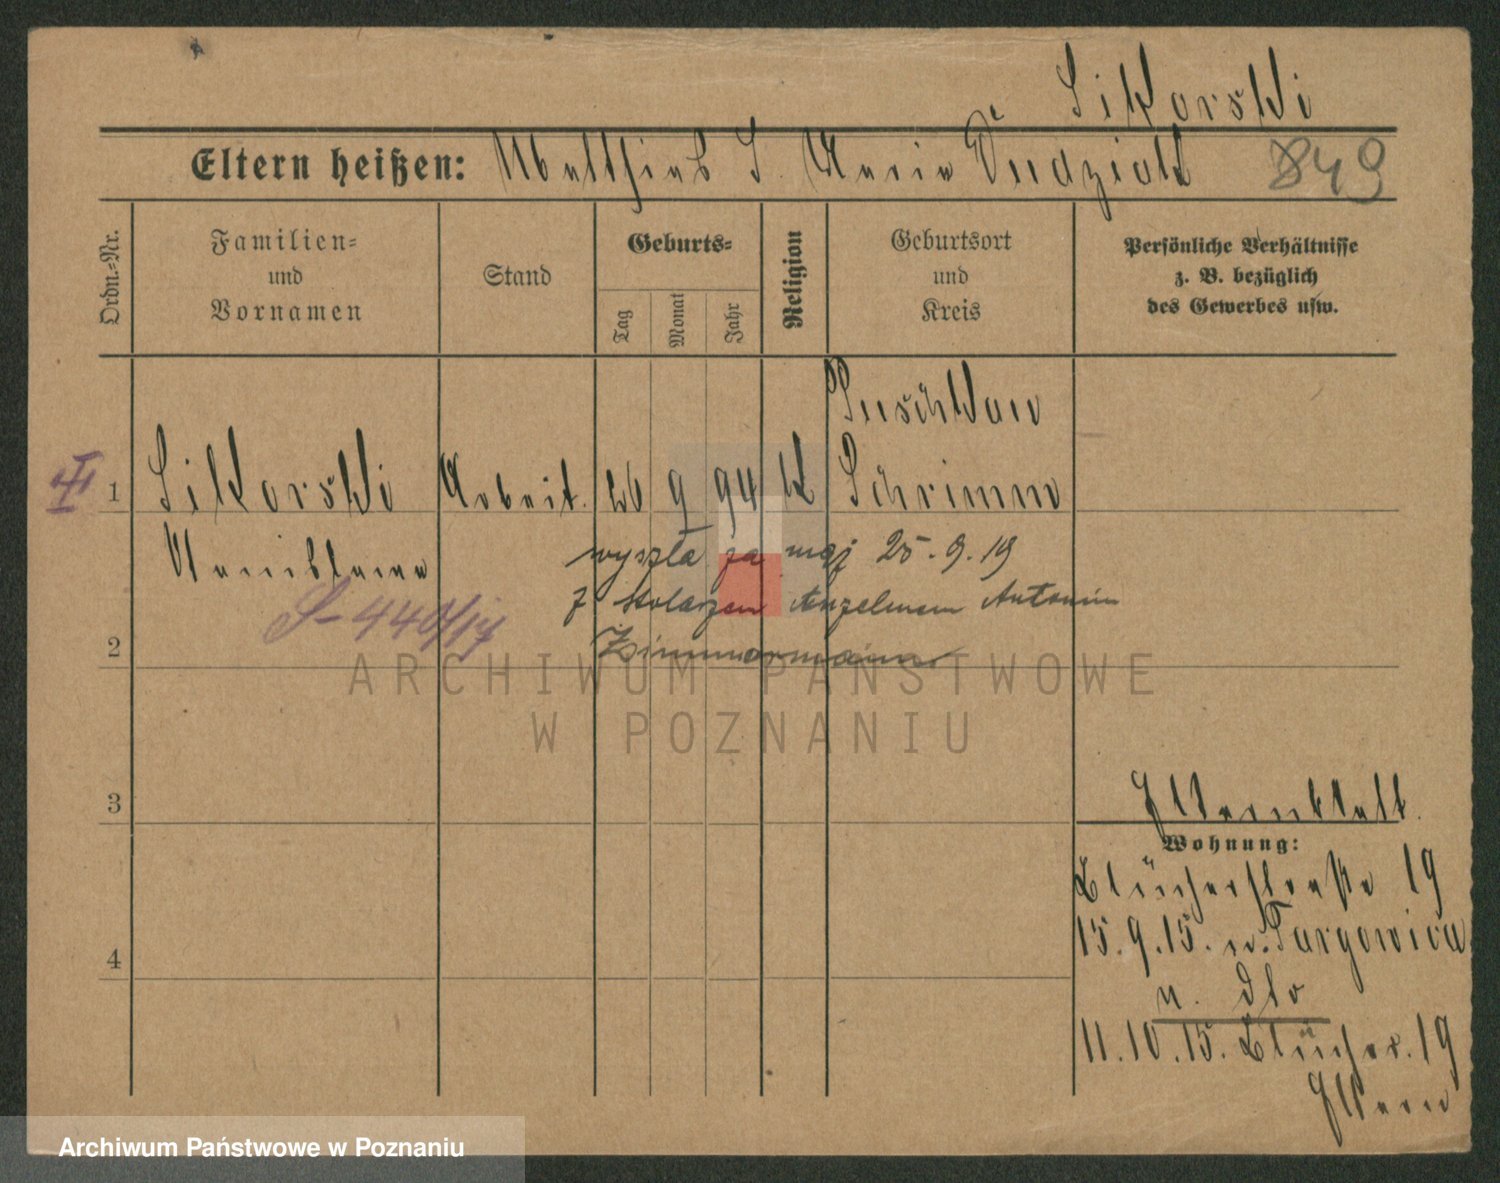 Sikorski
Eltern heißen: Matthias S. Maria Dudziak 849
Ordn.=Nr.
Familien=
und
Vornamen
Stand
Geburts=
Tag
Monat
Jahr
Religion
Geburtsort
und
Kreis
Persönliche Verhältnisse
z. B. bezüglich
des Gewerbes usw.
Puschkau
1 Sikorski Arbeit. 26 9 94 K Schrimm
wyszła za mąż 25.9.19
z stolarzem Anzelmem Antonim
Zimmermann
S-440/17
2
3
4
Wohnung:
Blücherstraße 19
15.9.15. n. Targowica
11.10.15. Blücher. 19
Eltern
ARCHIWUM PAŃSTWOWE
W POZNANIU
Archiwum Państwowe w Poznaniu